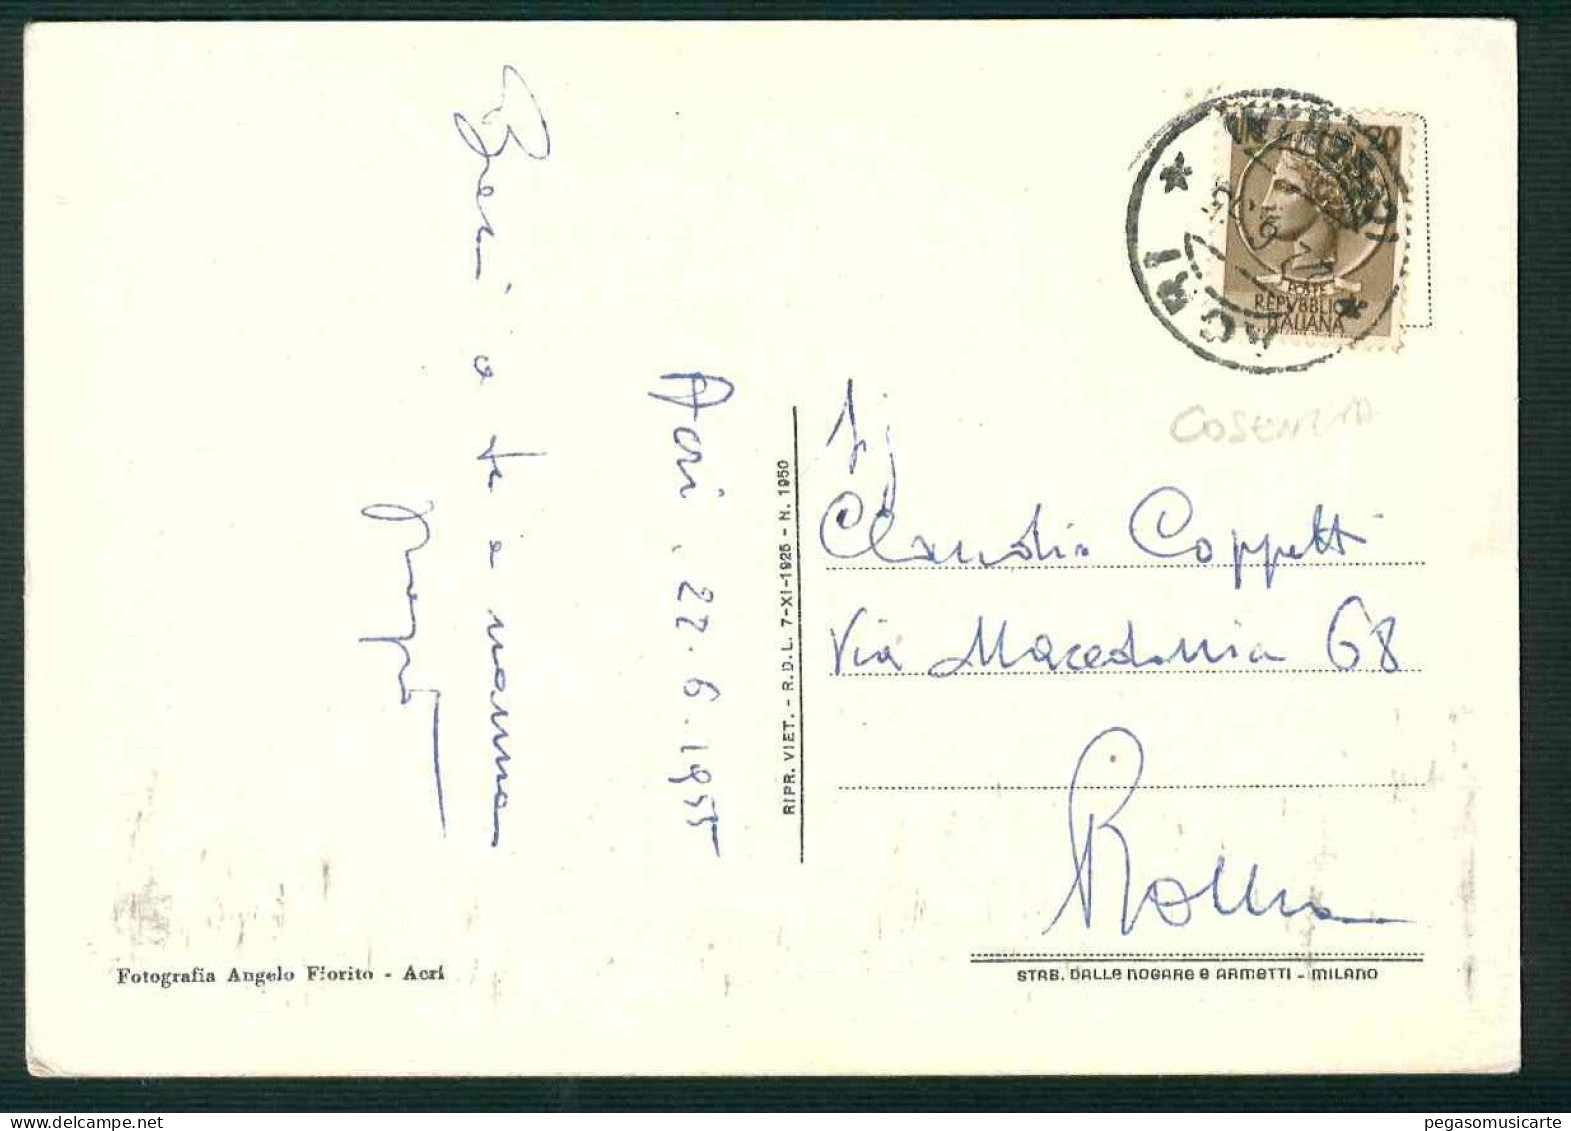 Baci a te e nonna
Acri. 22.6.1955
RIPR. VIET. - R.D.L. 7-XI-1925 - N. 1950
Fotografia Angelo Fiorito - Acri
20
POSTE
REPVBBLICA
ITALIANA
ACRI
COSENZA
Claudio Coppetti
Via Macedonia 68
Roma
STAB. DALLE NOGARE e ARMETTI - MILANO
pegasomusicarte